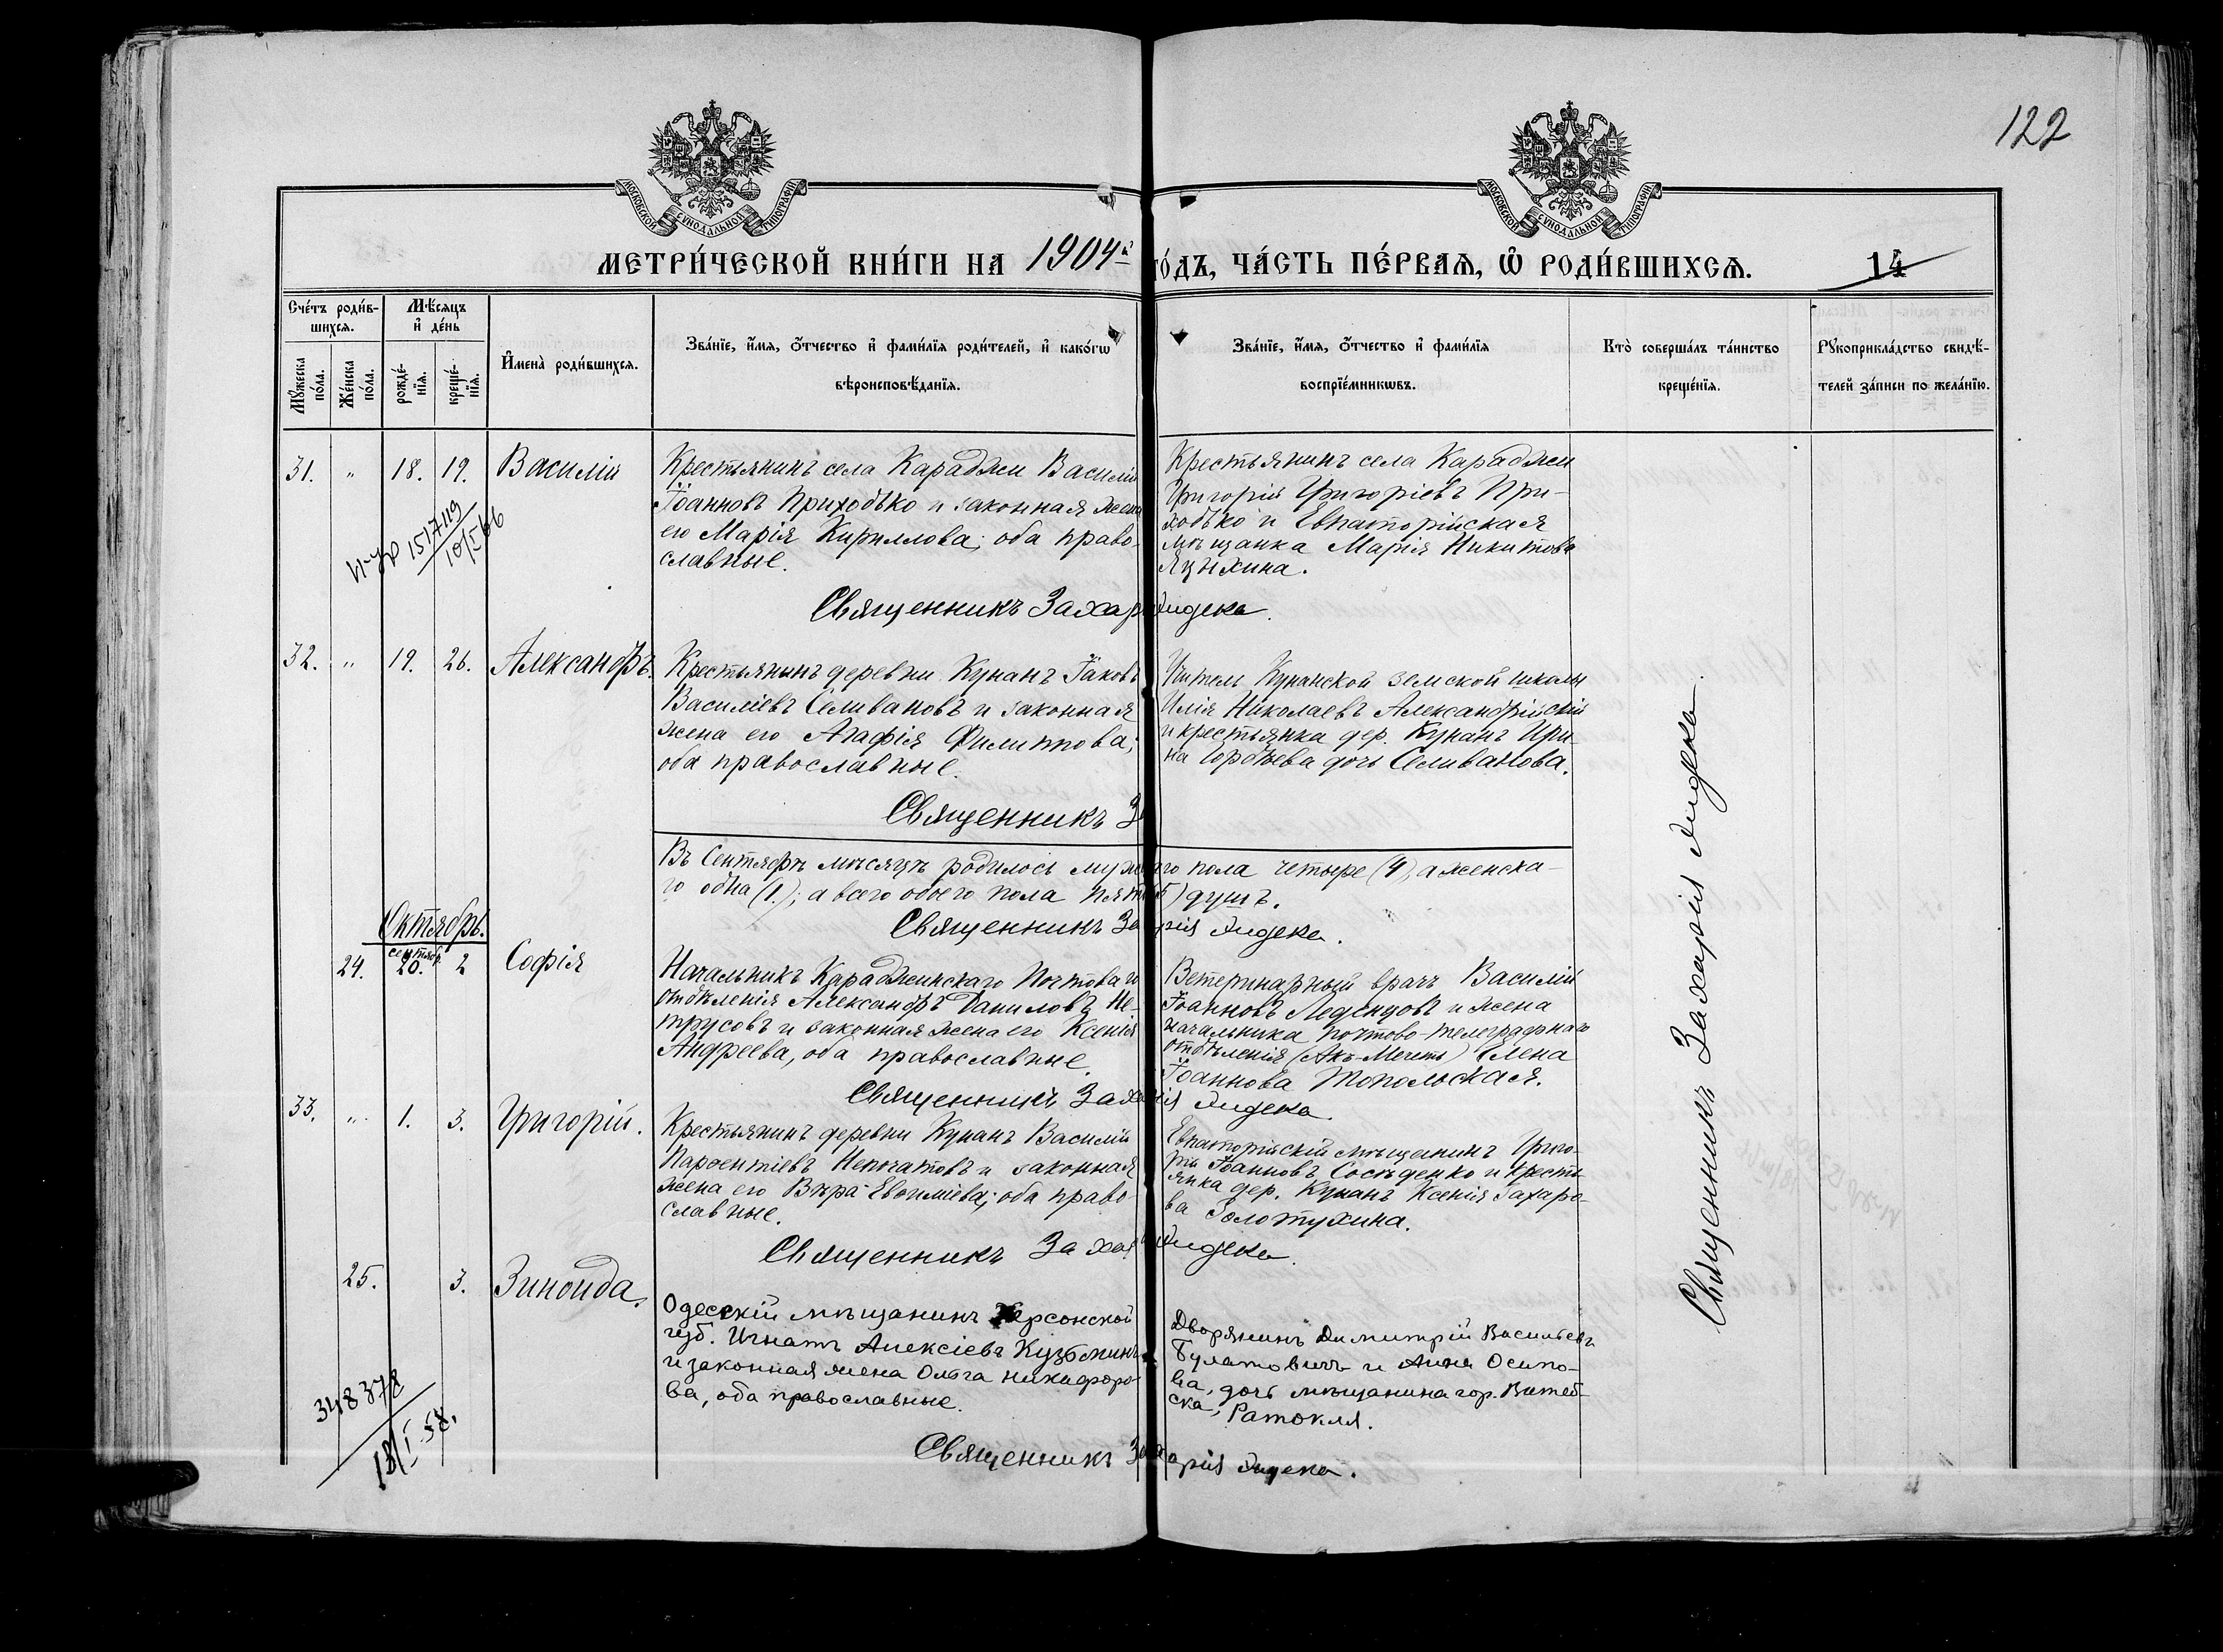 122
МОСКОВСКОЙ СУНОДАЛЬНОЙ ТИПОГРАФІИ
МОСКОВСКОЙ СУНОДАЛЬНОЙ ТИПОГРАФІИ
МЕТРИ́ЧЕСКОЙ КНИ́ГИ НА 1904й го́дъ, ЧА́СТЬ ПЕ́РВАѦ, Ѡ҆ РОДИ́ВШИХСѦ.
14
Сче́тъ роди́в-
шихсѧ.
Мꙋ́жеска по́ла.
Же́нска по́ла.
Мѣ́сѧцъ
и҆ де́нь
рожде́-
нїѧ.
креще́-
нїѧ.
И҆мена̀ роди́вшихсѧ.
Зва́нїе, и҆́мѧ, ѻ҆́тчество и҆ фами́лїѧ роди́телей, и҆ како́гѡ
вѣроисповѣ́данїѧ.
Зва́нїе, и҆́мѧ, ѻ҆́тчество и҆ фами́лїѧ
воспрїе́мникѡвъ.
Кто̀ соверша́лъ та́инство
креще́нїѧ.
Рꙋкоприкла́дство свидѣ́-
телей за́писи по жела́нїю.
31. " 18. 19. Василій
Крестьянинъ села Караджи Василій
Іоанновъ Приходько и законная жена
его Марія Кириллова; оба право-
славные.
Крестьянинъ села Караджи
Григорій Григоріевъ При-
ходько и Евпаторійская
мѣщанка Марія Никитова
Священникъ Захарій
32. " 19. 26. Александръ.
Крестьянинъ деревни Кунанъ Іаковъ
Василіевъ Селивановъ и законная
жена его Агафія Филиппова;
оба православные.
Учитель Кунанской земской школы
Илія Николаевъ Александрійскій
и крестьянка дер. Кунанъ Ири-
на Гордѣева дочь Селиванова.
Священникъ
Въ Сентябрѣ мѣсяцѣ родилось мужскаго пола четыре (4), а женска-
го одна (1.); а всего обоего пола пять (5) душъ.
Священникъ Захарій
Октябрь.
сентяб.
24. 20. 2 Софія
Начальникъ Караджинскаго Почтоваго
отдѣленія Александръ Даниловъ Не-
трусовъ и законная жена его Ксенія
Андреева, оба православные.
Ветеринарный врачъ Василій
Іоанновъ Леденцовъ и жена
начальника почтово-телеграфнаго
отдѣленія (Акъ-Мечеть) Елена
Іоаннова Топольская.
Священникъ Захарій
33. " 1. 3. Григорій.
Крестьянинъ деревни Кунанъ Василій
Парѳентіевъ Непочатовъ и законная
жена его Вѣра Евѳиміева; оба право-
славные.
Евпаторійскій мѣщанинъ Григо-
рій Іоанновъ Сосѣденко и кресть-
янка дер. Кунанъ Ксенія Захаро-
ва Золотухина.
Священникъ Захарій
25. 3. Зиноида.
Одесскій мѣщанинъ Херсонской
губ. Игнатъ Алексіевъ Кузьминъ
и законная жена Ольга Никифоро-
ва, оба православные.
Дворянинъ Димитрій Васильевъ
Булатовичъ и Анна Осипо-
ва, дочь мѣщанина гор. Витеб-
ска, Ратокля.
Священникъ Захарій
Священникъ Захарій
348378
18/I-58.